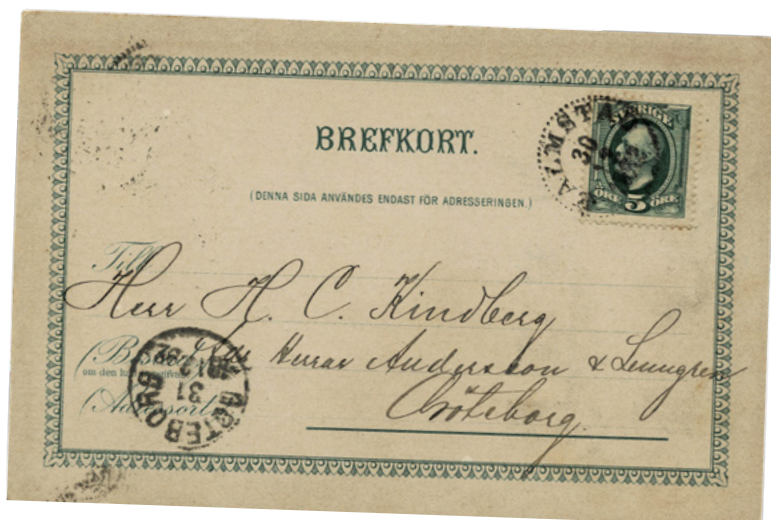 BREFKORT.
(DENNA SIDA ANVÄNDES ENDAST FÖR ADRESSERINGEN.)
HALMSTAD
30
SVERIGE
5 ÖRE
Till
Herr H. C. Kindberg
Herrar Andersson &
om den
Göteborg.
GÖTEBORG
31
12